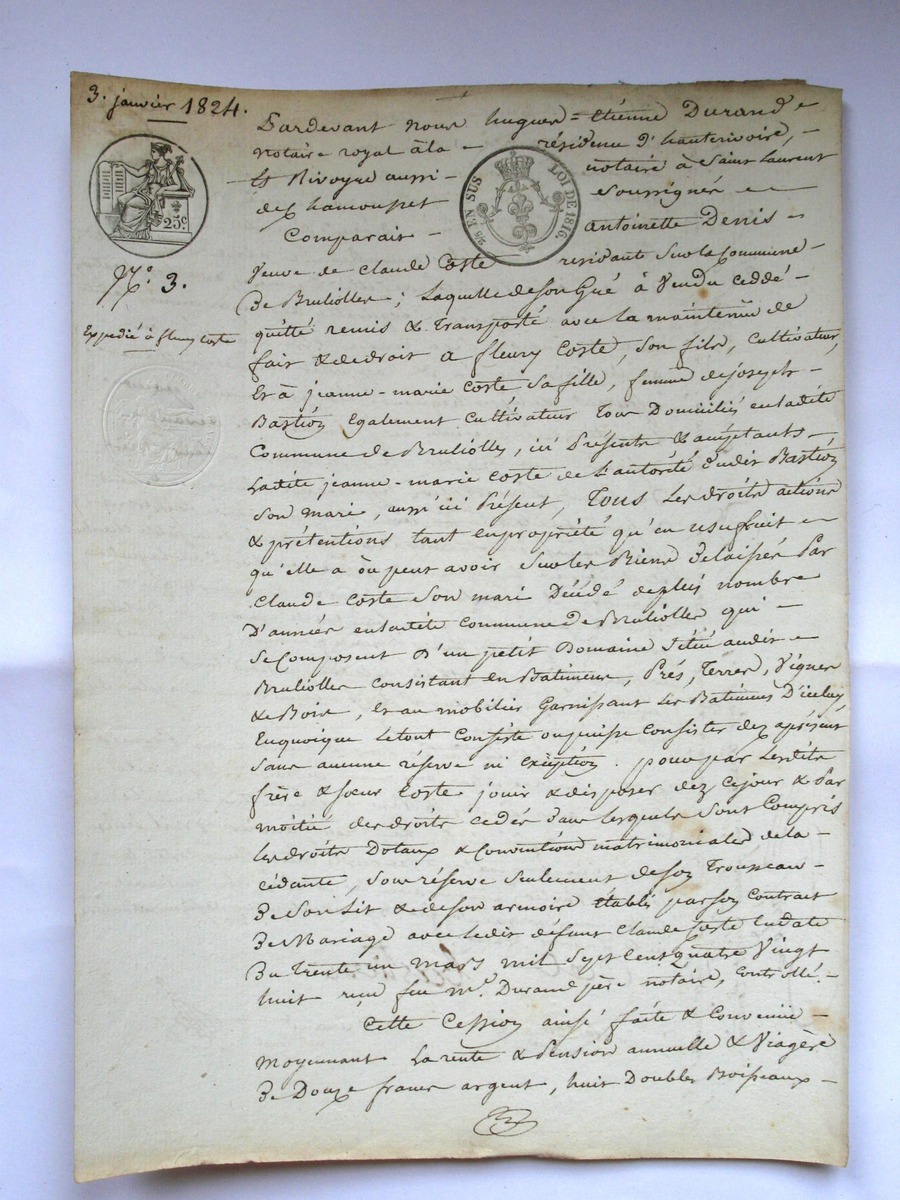 3. janvier 1824.
Pardevant nous hugues = Etiénne Durand e
notaire royal à la résidence d'hauterivoire,
Et Rivoyre aussi notaire à Saint Laurent
de Chamousset Soussignés
Comparait antoinette Denis
Veuve de Claude Coste residante Sur la Commune
de Brulioller ; Laquelle de son Gré à Vendu ceddé
quitté remis & Transporté avec la maintenüe de
fait & de droit a fleury Coste, Son fils, cultivateur,
Et à jeanne-marie Coste Sa fille, femme de joseph
Bastion Egalement Cultivateur Tous Domiciliés en ladite
Commune de Brulioller, ici Présents & acceptants
Ladite jeanne-marie Coste de L'autorité dudit Bastion
Son mari, aussi ici Présent, Tous Les droits actions
& prétentions tant en propriété qu'en usufruit
qu'elle a où peut avoir Sur les Biens délaissés Par
Claude Coste Son mari Décédé depuis nombre
D'années en ladite Commune de Brulioller qui
Se Composent D'un petit Domaine Situé audit
Brulioller consistant en Batimens, Prés, Terres, Vignes
& Bois, Et au mobilier Garnissant Les Batimens D'iceluy
En quoique Letout Consiste ou puisse Consister dez aprésent
Sans aucune réserve ni exéption. pour par Lesdits
frère & Soeur Coste jouir & disposer dez cejour & Par
moitié des droits cedés dans lesquels Sont Compris
Les droits Dotaux & Conventions matrimoniales de la
cédante, Sous réserve Seulement de son Trousseau
de Son Lit & de Son armoire établis par son Contrat
de Mariage avec ledit défunt Claude Coste En date
Du Trente un mars mil Sept Cent Quatre Vingt
huit reçu feu Me. Durand père notaire, Controllé.
Cette Cession ainsi faite & Convenüe
Moyennant La rente & Pension annuelle & Viagère
de Douze francs argent, huit Doubles Boisseaux
25 c.
25 EN SUS LOI DE 1816.
N.° 3.
Expedié à fleury Coste